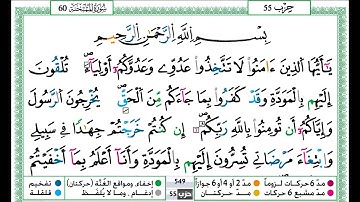 60 سُورَةُ الْمُمْتَحَنَةِ
حِزْب 55
بِسْمِ اللَّهِ الرَّحْمَٰنِ الرَّحِيمِ
يَٰٓأَيُّهَا ٱلَّذِينَ ءَامَنُوا۟ لَا تَتَّخِذُوا۟ عَدُوِّى وَعَدُوَّكُمْ أَوْلِيَآءَ تُلْقُونَ
إِلَيْهِم بِٱلْمَوَدَّةِ وَقَدْ كَفَرُوا۟ بِمَا جَآءَكُم مِّنَ ٱلْحَقِّ يُخْرِجُونَ ٱلرَّسُولَ
وَإِيَّاكُمْ أَن تُؤْمِنُوا۟ بِٱللَّهِ رَبِّكُمْ إِن كُنتُمْ خَرَجْتُمْ جِهَٰدًا فِى سَبِيلِى
وَٱبْتِغَآءَ مَرْضَاتِى تُسِرُّونَ إِلَيْهِم بِٱلْمَوَدَّةِ وَأَنَا۠ أَعْلَمُ بِمَآ أَخْفَيْتُمْ
مدّ 6 حركات لزوماً مدّ 2 أو 4 أو 6 جوازاً 549 إخفاء، ومواقع الغُنَّة (حركتان) تفخيم
مدّ مشبع 6 حركات مدّ حركتان حزب 55 إدغام، وما لا يُلفَظ قلقلة